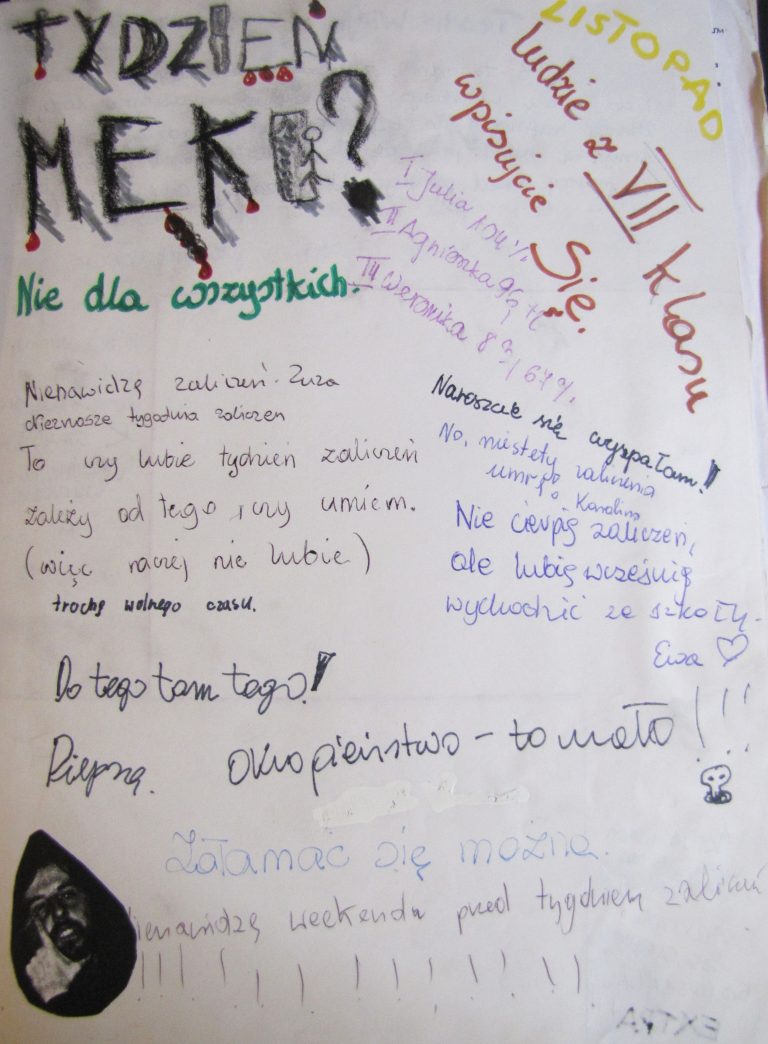 TYDZIEŃ
MĘKI?
LISTOPAD
ludzie z VII klasy
wpisujcie
Się.
I Julia 104%
II Agnieszka 96%
III Weronika 89,67%.
Nie dla wszystkich.
Nienawidzę zaliczeń. Zuza
Nieznoszę tygodnia zaliczeń
To czy lubię tydzień zaliczeń
zależy od tego, czy umiem.
(więc raczej nie lubię)
trochę wolnego czasu.
Nareszcie się wyspałam!
No, niestety zaliczenia
umrę. Karolina
Nie cierpię zaliczeń,
ale lubię wcześnie
wychodzić ze szkoły.
Ewa
Do tego tam tego!
Okropieństwo - to mało!!!
Załamać się można.
Nienawidzę weekendu przed tygodniem zaliczeń
!!!!!!!!!!!!
EXTRA